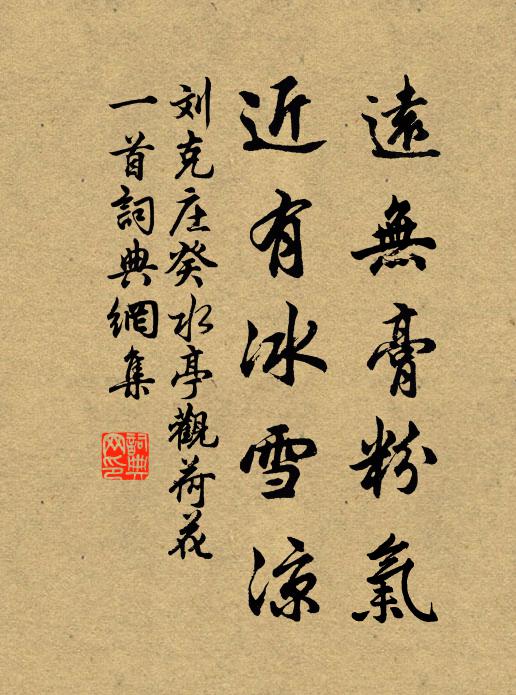 遠無膏粉氣
近有冰雪涼
刘克庄癸水亭觀荷花
一首詞典網集
詞典
网印